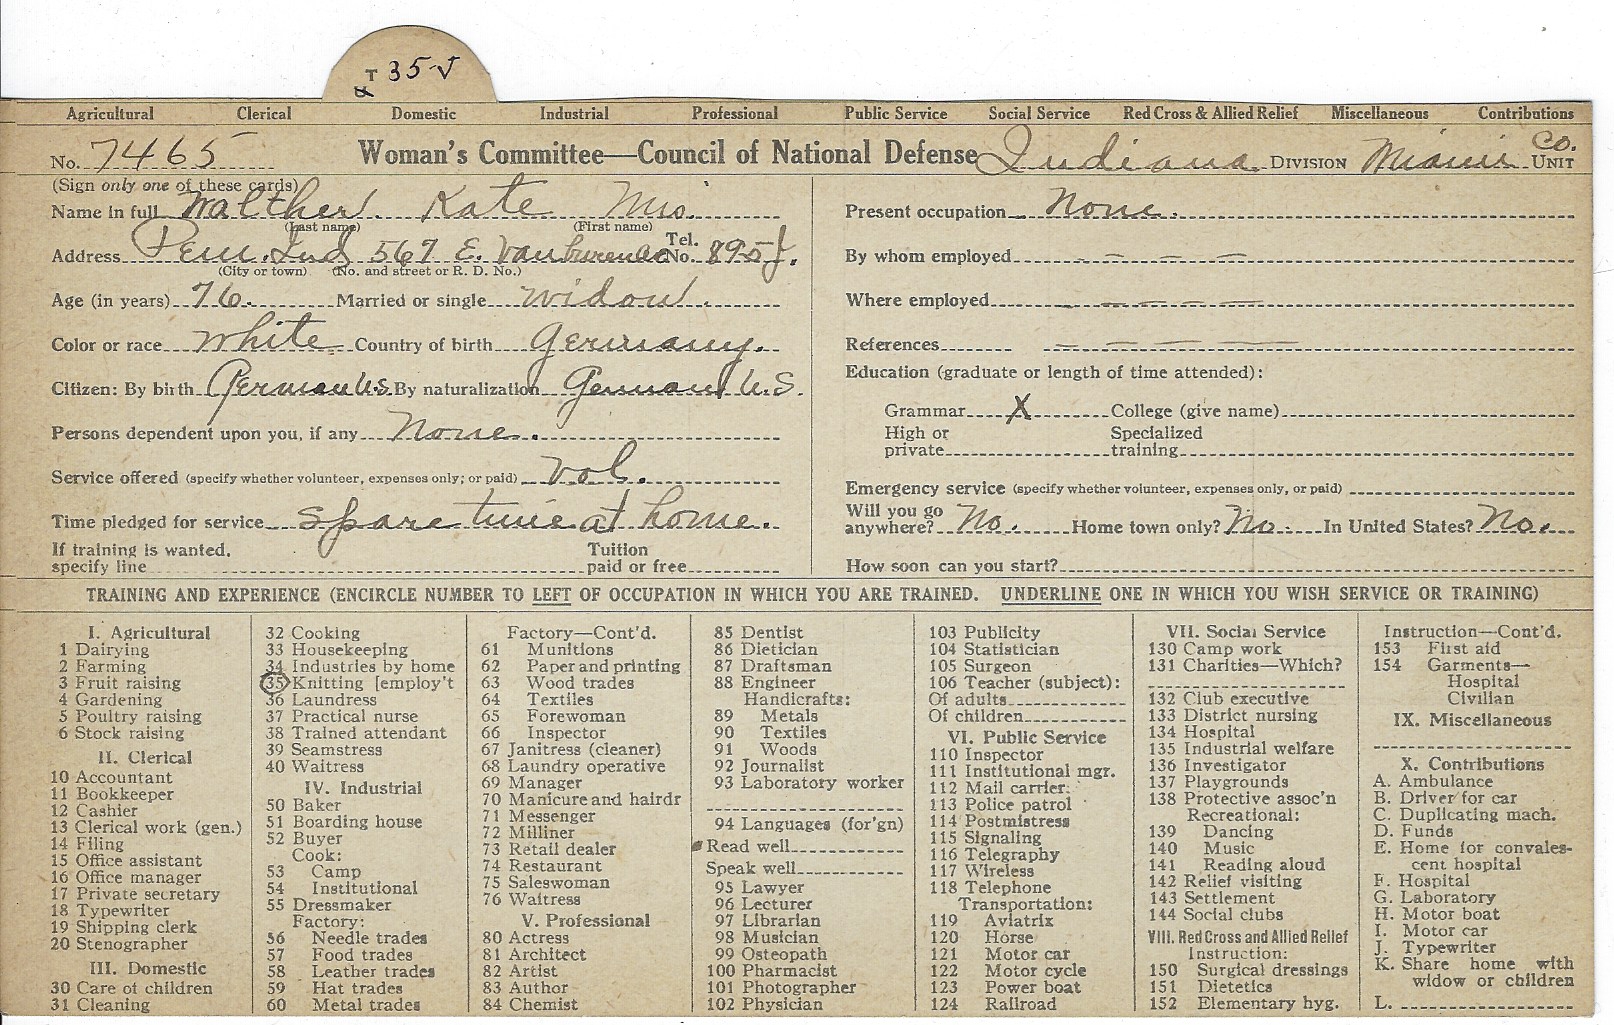 T 35 J
Agricultural Clerical Domestic Industrial Professional Public Service Social Service Red Cross & Allied Relief Miscellaneous Contributions
No. 7465 Woman's Committee—Council of National Defense Indiana DIVISION Miami Co. UNIT
(Sign only one of these cards)
Name in full Walther Kate Mrs.
(Last name) (First name)
Address Peru. Ind 567 E. Vanburen Tel. No. 895 J.
(City or town) (No. and street or R. D. No.)
Age (in years) 76. Married or single widow.
Color or race white Country of birth Germany.
Citizen: By birth German U.S. By naturalization German U.S.
Persons dependent upon you, if any None.
Service offered (specify whether volunteer, expenses only; or paid) vol.
Time pledged for service spare time at home.
If training is wanted, specify line Tuition paid or free
Present occupation None.
By whom employed — — — —
Where employed — — — —
References — — — —
Education (graduate or length of time attended):
Grammar X College (give name)
High or private Specialized training
Emergency service (specify whether volunteer, expenses only, or paid)
Will you go anywhere? No. Home town only? No. In United States? No.
How soon can you start?
TRAINING AND EXPERIENCE (ENCIRCLE NUMBER TO LEFT OF OCCUPATION IN WHICH YOU ARE TRAINED. UNDERLINE ONE IN WHICH YOU WISH SERVICE OR TRAINING)
I. Agricultural
1 Dairying
2 Farming
3 Fruit raising
4 Gardening
5 Poultry raising
6 Stock raising
II. Clerical
10 Accountant
11 Bookkeeper
12 Cashier
13 Clerical work (gen.)
14 Filing
15 Office assistant
16 Office manager
17 Private secretary
18 Typewriter
19 Shipping clerk
20 Stenographer
III. Domestic
30 Care of children
31 Cleaning
32 Cooking
33 Housekeeping
34 Industries by home
35 Knitting [employ't
36 Laundress
37 Practical nurse
38 Trained attendant
39 Seamstress
40 Waitress
IV. Industrial
50 Baker
51 Boarding house
52 Buyer
Cook:
53 Camp
54 Institutional
55 Dressmaker
Factory:
56 Needle trades
57 Food trades
58 Leather trades
59 Hat trades
60 Metal trades
Factory—Cont'd.
61 Munitions
62 Paper and printing
63 Wood trades
64 Textiles
65 Forewoman
66 Inspector
67 Janitress (cleaner)
68 Laundry operative
69 Manager
70 Manicure and hairdr
71 Messenger
72 Milliner
73 Retail dealer
74 Restaurant
75 Saleswoman
76 Waitress
V. Professional
80 Actress
81 Architect
82 Artist
83 Author
84 Chemist
85 Dentist
86 Dietician
87 Draftsman
88 Engineer
Handicrafts:
89 Metals
90 Textiles
91 Woods
92 Journalist
93 Laboratory worker
94 Languages (for'gn)
Read well
Speak well
95 Lawyer
96 Lecturer
97 Librarian
98 Musician
99 Osteopath
100 Pharmacist
101 Photographer
102 Physician
103 Publicity
104 Statistician
105 Surgeon
106 Teacher (subject):
Of adults
Of children
VI. Public Service
110 Inspector
111 Institutional mgr.
112 Mail carrier.
113 Police patrol
114 Postmistress
115 Signaling
116 Telegraphy
117 Wireless
118 Telephone
Transportation:
119 Aviatrix
120 Horse
121 Motor car
122 Motor cycle
123 Power boat
124 Railroad
VII. Social Service
130 Camp work
131 Charities—Which?
132 Club executive
133 District nursing
134 Hospital
135 Industrial welfare
136 Investigator
137 Playgrounds
138 Protective assoc'n
Recreational:
139 Dancing
140 Music
141 Reading aloud
142 Relief visiting
143 Settlement
144 Social clubs
VIII. Red Cross and Allied Relief
Instruction:
150 Surgical dressings
151 Dietetics
152 Elementary hyg.
Instruction—Cont'd.
153 First aid
154 Garments—
Hospital
Civilian
IX. Miscellaneous
X. Contributions
A. Ambulance
B. Driver for car
C. Duplicating mach.
D. Funds
E. Home for convales-
cent hospital
F. Hospital
G. Laboratory
H. Motor boat
I. Motor car
J. Typewriter
K. Share home with
widow or children
L.